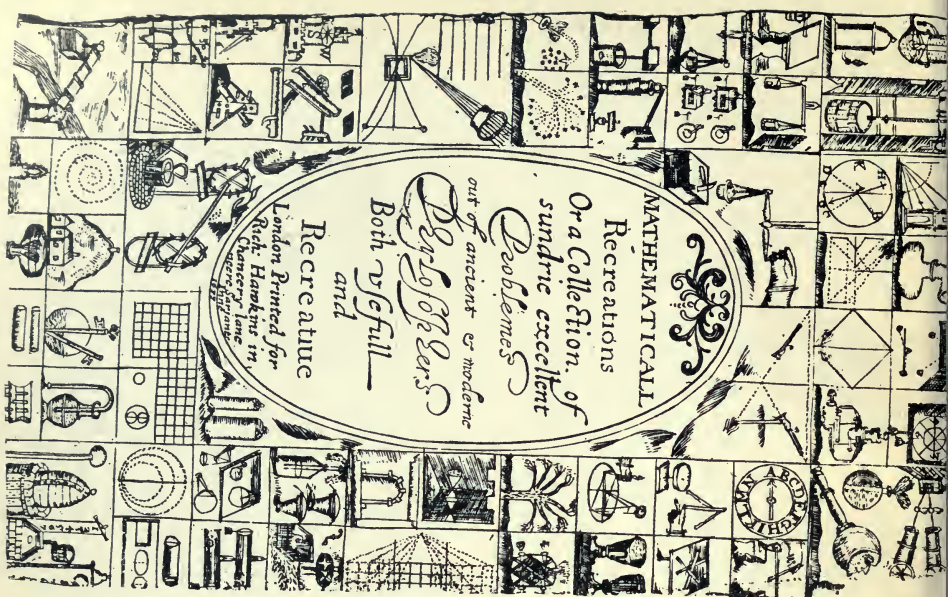 MATHEMATICALL
Recreations
Or a Collection of
sundrie excellent
Problemes
out of ancient & moderne
Phylosophers
Both vsefull
and
Recreatiue
London Printed for
Rich: Hawkins in
Chancery lane
neere Sarjants